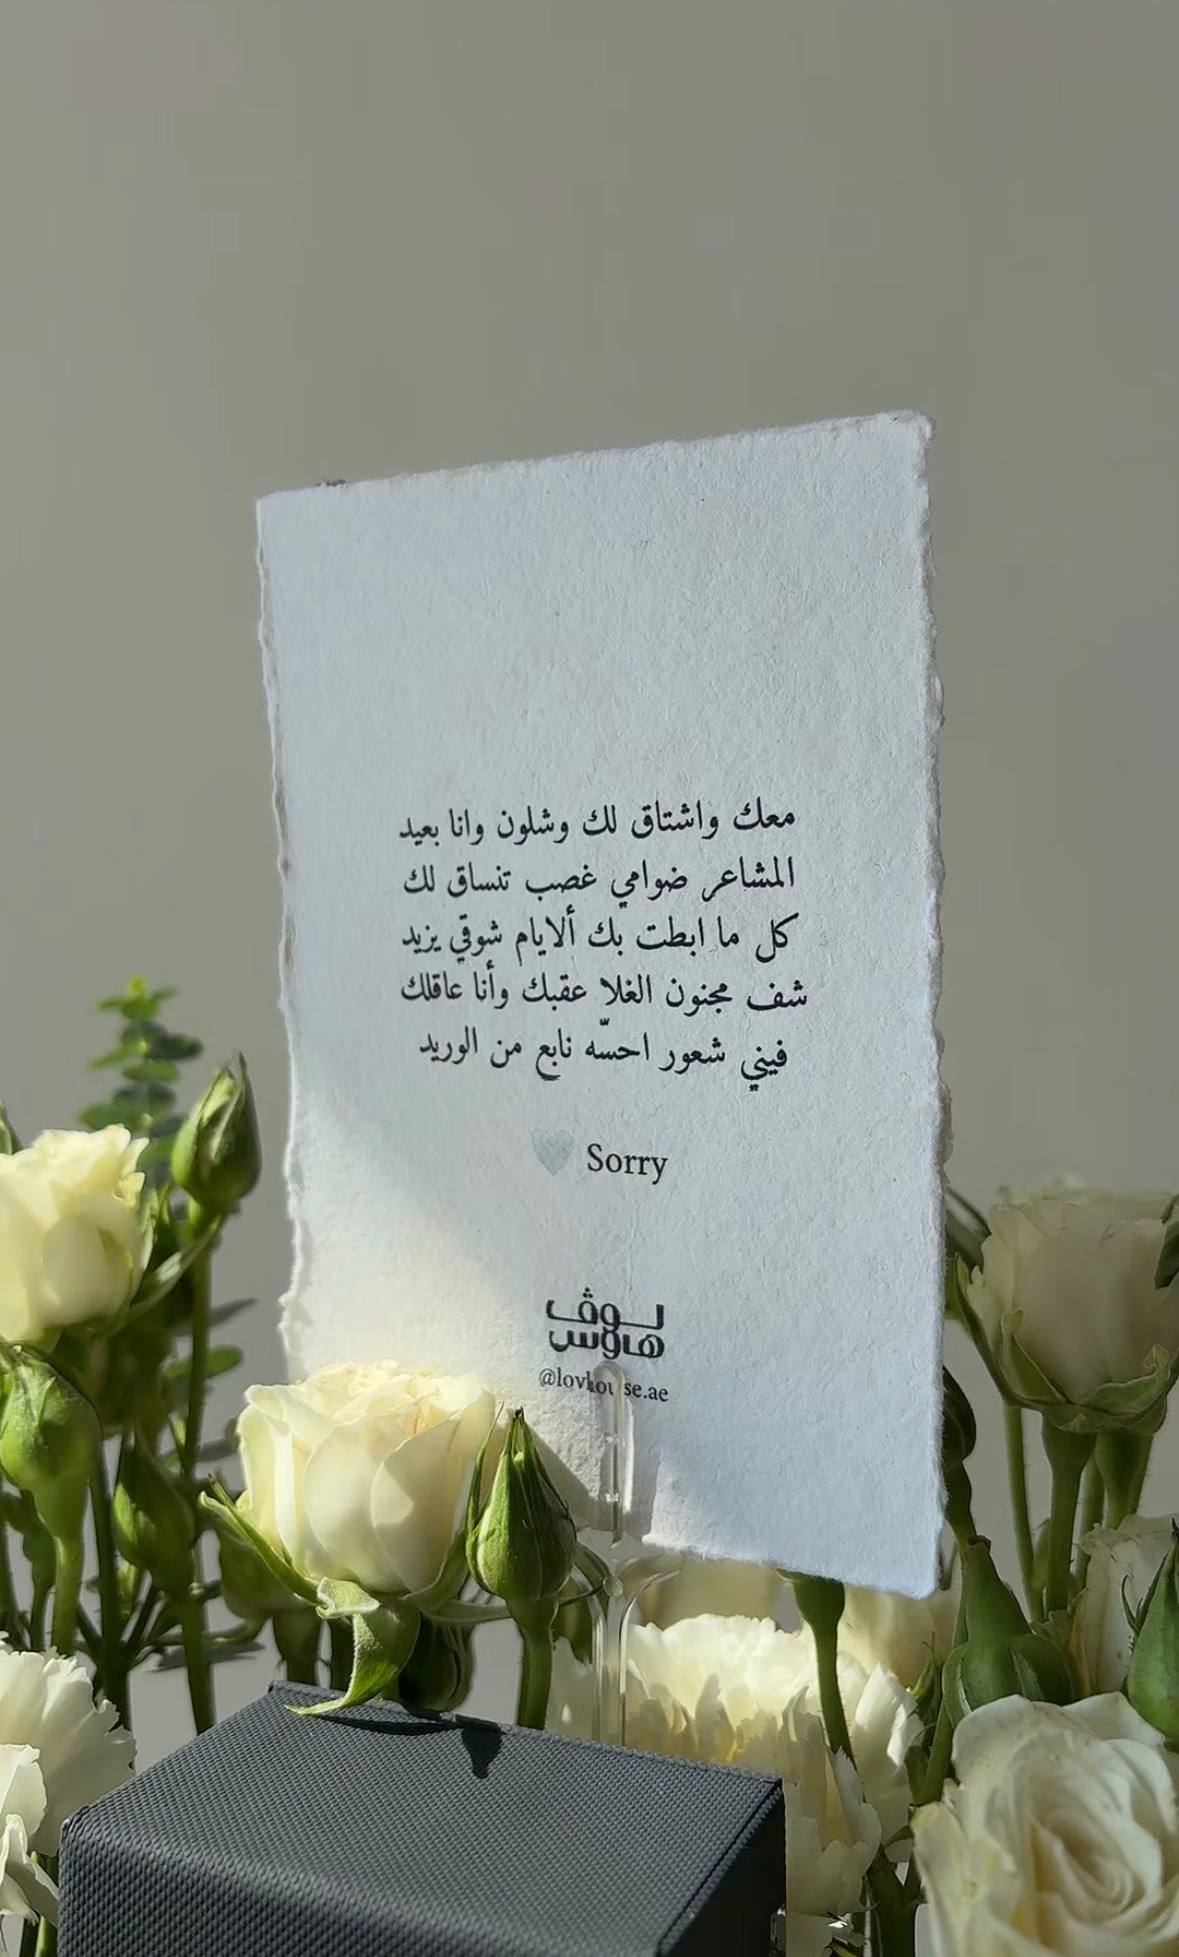 معك واشتاق لك وشلون وانا بعيد
المشاعر ضوامي غصب تنساق لك
كل ما ابطت بك ألايام شوقي يزيد
شف مجنون الغلا عقبك وأنا عاقلك
فيني شعور احسّه نابع من الوريد
Sorry 🤍
لـوڤ
هاوس
@lovhouse.ae